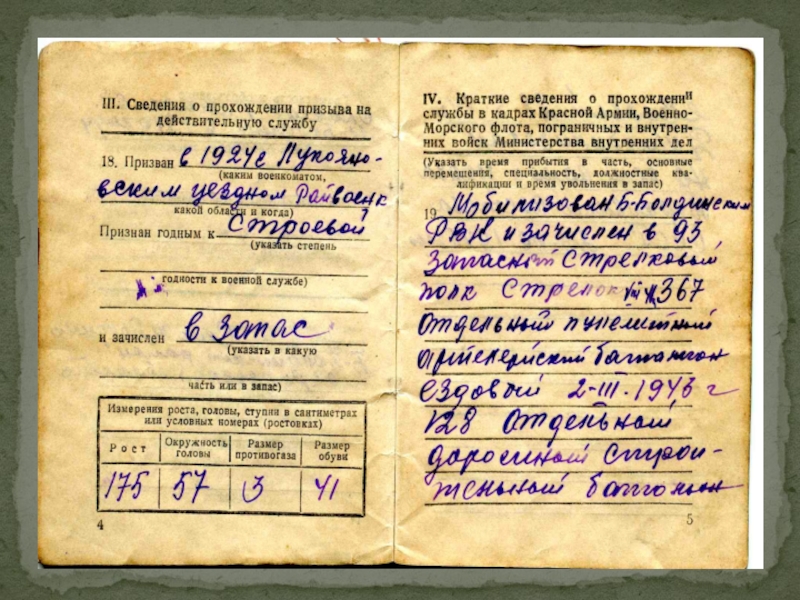 III. Сведения о прохождении призыва на
действительную службу
18. Призван в 1924 г Лукояно-
(каким военкоматом,
вским уездном Райвоенк
какой области и когда)
Признан годным к Строевой
(указать степень
годности к военной службе)
и зачислен в запас
(указать в какую
часть или в запас)
Измерения роста, головы, ступни в сантиметрах
или условных номерах (ростовках)
Рост Окружность головы Размер противогаза Размер обуви
175 57 3 41
4
IV. Краткие сведения о прохождении
службы в кадрах Красной Армии, Военно-
Морского флота, пограничных и внутрен-
них войск Министерства внутренних дел
(Указать время прибытия в часть, основные
перемещения, специальность, должностные ква-
лификации и время увольнения в запас)
19 Мобилизован Б-Болдинским
РВК и зачислен в 93
запасный Стрелковый
полк Стрелок 367
Отдельный пулеметный
артелерийский баталион
ездовый 2-III.1943 г
128 Отдельный
дорожный строи-
тельный баталион
5